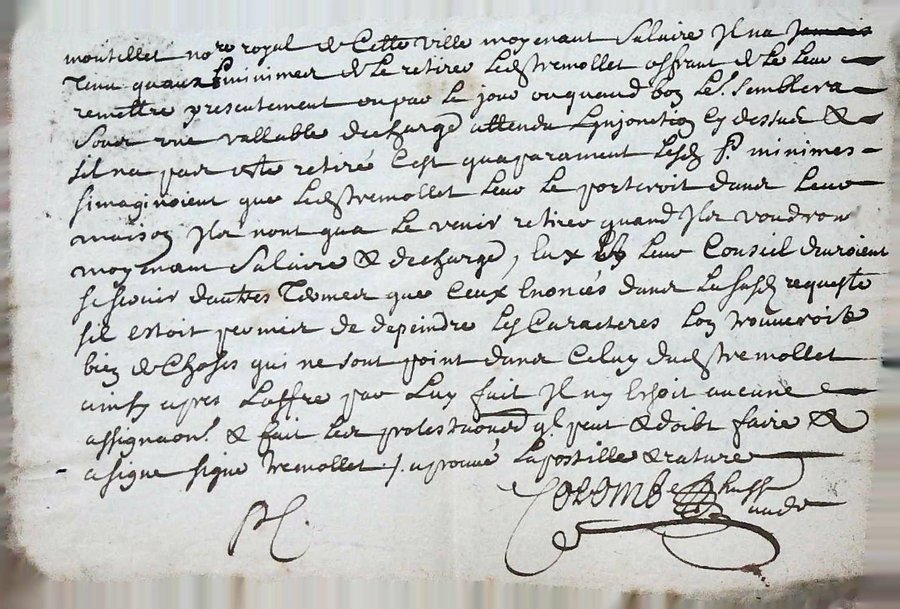 montillet no.re royal de Cette ville moyenant Salaire Il na Jamais
Tenu quaux Srs minimes de le retirer Ledt tremollet offrant de Le Leur
remettre presentement ou par le jour ou quand bon Le.r Semblera
Sous une vallable decharge attendu Linjonction Cy dessus &
sil na pas este retiré Cest quaparament Lesd. Srs minimes
simaginoient que Ledt tremollet Leur le porteroit dans Leur
maison Ils nont qua le venir retirer quand Ils voudron
moyenant Salaire & decharge, Eux Leur Conseil devroient
se servir dautres Termes que Ceux Enoncés dans La susd. requeste
sil estoit permis de depeindre Les Caracteres Lon trouveroit
bien de Choses qui ne sont point dans Celuy dudt tremollet
ainsy apres Loffre par Luy fait Il ny Eshoit aucune
assignaon. & fait Les protestaons ql peut & doibt faire &
a signe signe tremollet /. aprouvé Lapostille & rature
Colombe